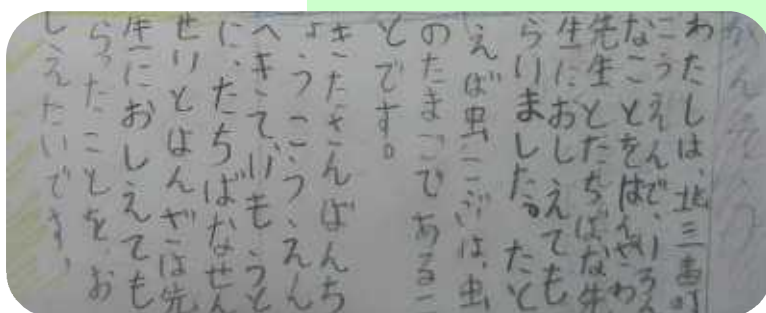 わたしは、北三番町
こうえんで、いろん
なことをはんざわ
先生とたちばな先
生におしえても
らいました。たと
えば虫こぶは、虫
のたまごであるこ
とです。
きたさんばんち
ょうこうえん
へきて、いもうと
に、たちばなせん
せいとはんざわ先
生におしえても
らったことを、お
しえたいです。